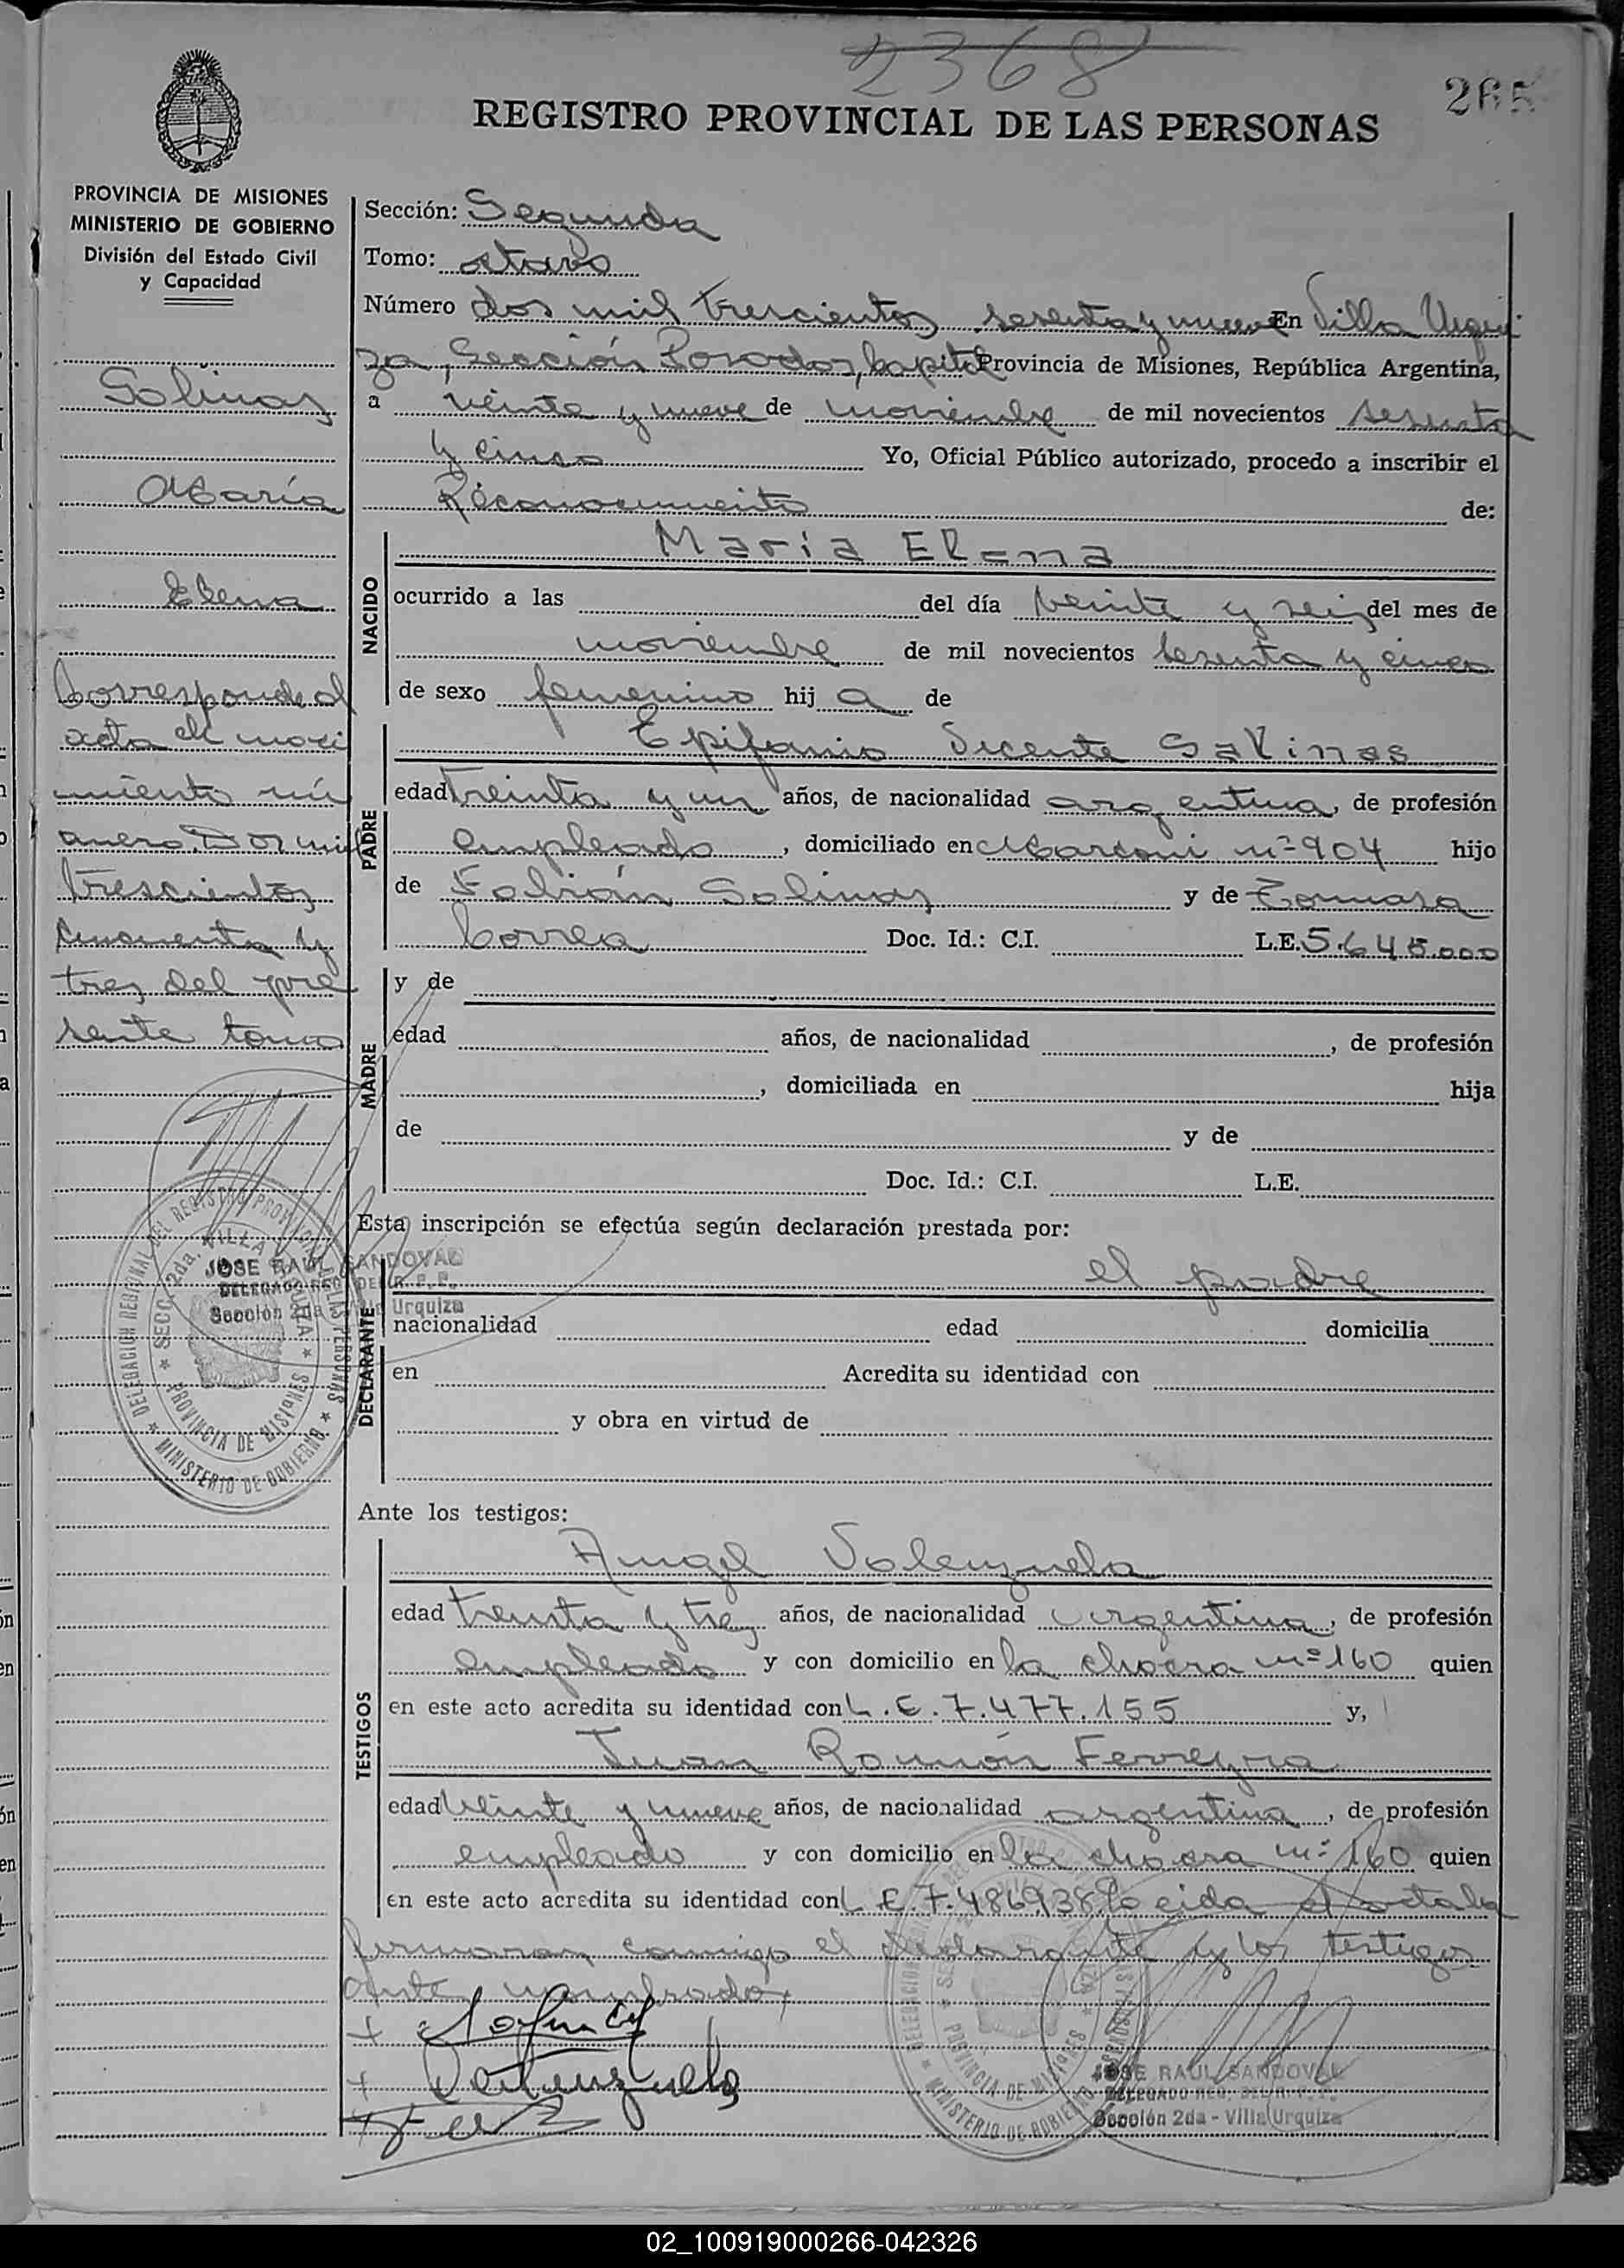 2368
265
REGISTRO PROVINCIAL DE LAS PERSONAS
PROVINCIA DE MISIONES
MINISTERIO DE GOBIERNO
División del Estado Civil
y Capacidad
Salinas
María
Elena
Corresponde al
acta de naci
miento nú
mero Dos mil
trescientos
cincuenta y
tres del pre
sente tomo
Sección: Segunda
Tomo: octavo
Número dos mil trescientos sesenta y nueve En Villa Urqui
za, Sección Posadas, Capital Provincia de Misiones, República Argentina,
a veinte y nueve de noviembre de mil novecientos sesenta
y cinco Yo, Oficial Público autorizado, procedo a inscribir el
Reconocimiento de:
NACIDO
María Elena
ocurrido a las del día veinte y seis del mes de
noviembre de mil novecientos sesenta y cinco
de sexo femenino hij a de
PADRE
Epifanio Vicente Salinas
edad treinta y un años, de nacionalidad argentina, de profesión
empleado, domiciliado en Marconi nº 904 hijo
de Fabián Salinas y de Tomasa
Correa Doc. Id.: C.I. L.E. 5.645.000
MADRE
y de
edad años, de nacionalidad , de profesión
, domiciliada en hija
de y de
Doc. Id.: C.I. L.E.
Esta inscripción se efectúa según declaración prestada por:
DECLARANTE
el padre
nacionalidad edad domicilia
en Acredita su identidad con
y obra en virtud de
DELEGACION REGIONAL DEL REGISTRO PROVINCIAL DE LAS PERSONAS
SECC. 2da. VILLA URQUIZA
PROVINCIA DE MISIONES
MINISTERIO DE GOBIERNO
JOSE RAUL SANDOVAL
DELEGADO REG. DEL R. P. P.
Sección 2da - Villa Urquiza
Ante los testigos:
TESTIGOS
Angel Valenzuela
edad treinta y tres años, de nacionalidad argentina, de profesión
empleado y con domicilio en la chacra nº 160 quien
en este acto acredita su identidad con L.E. 7.477.155 y,
Juan Ramón Ferreyra
edad veinte y nueve años, de nacionalidad argentina, de profesión
empleado y con domicilio en la chacra nº 160 quien
en este acto acredita su identidad con L.E. 7.486938. Leída el acta la
firmaran conmigo el declarante y los testigos
ante nombrados
Valenzuela
PROVINCIA DE MISIONES
MINISTERIO DE GOBIERNO
JOSE RAUL SANDOVAL
DELEGADO REG. DEL R. P. P.
Sección 2da - Villa Urquiza
02_100919000266-042326